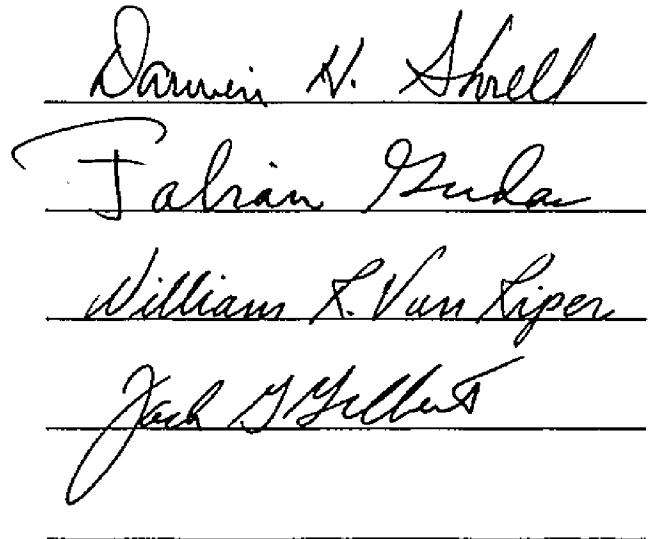 Darwin H. Shrell
Fabian Gudas
William R. Van Riper
Jack G Gilbert